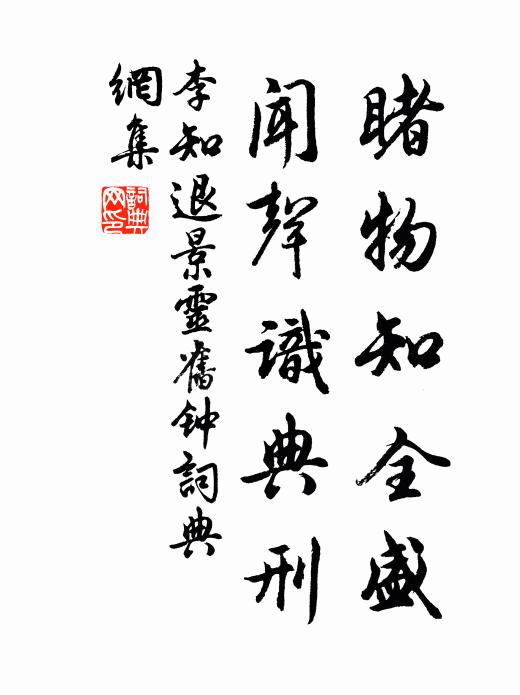 睹物知全盛
聞聲識典刑
李知退景靈舊钟詞典
網集
詞典
网印